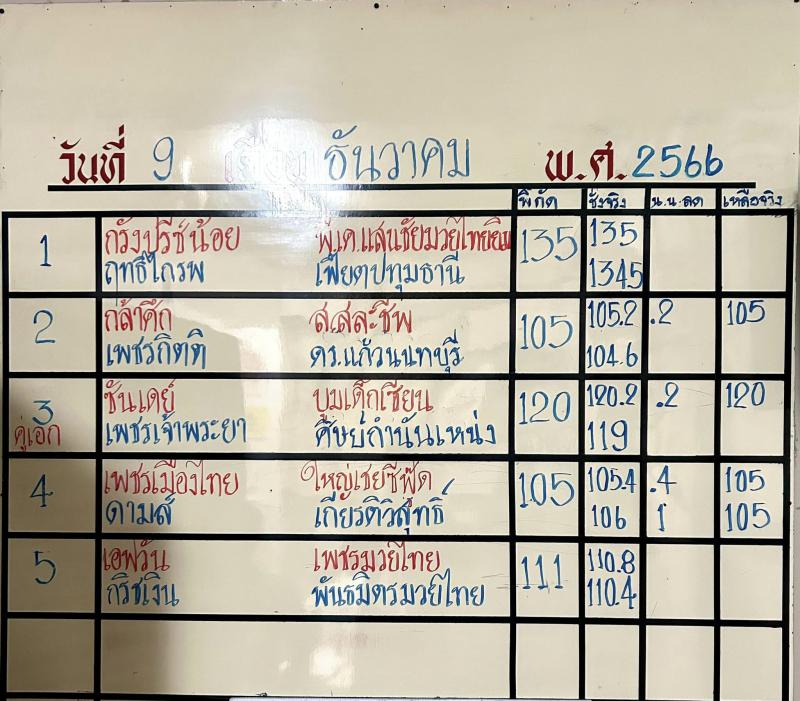 วันที่ 9 เดือน ธันวาคม พ.ศ. 2566
พิกัด ชั่งจริง น.น.ลด เหลือจริง
1 กรังปรีซ์น้อย พี.เค.แสนชัยมวยไทยยิม 135 135
ฤทธิ์ไกรพ เฟี๊ยตปทุมธานี 134.5
2 กล้าศึก ส.สละชีพ 105 105.2 .2 105
เพชรกิตติ ดร.แก้วนนทบุรี 104.6
3 ซันเดย์ บูมเด็กเซียน 120 120.2 .2 120
คู่เอก เพชรเจ้าพระยา ศิษย์กำนันเหน่ง 119
4 เพชรเมืองไทย ใหญ่เชยซีฟู้ด 105 105.4 .4 105
ดามส์ เกียรติวิสุทธิ์ 106 1 105
5 เอฟวัน เพชรมวยไทย 111 110.8
กริชเงิน พันธมิตรมวยไทย 110.4